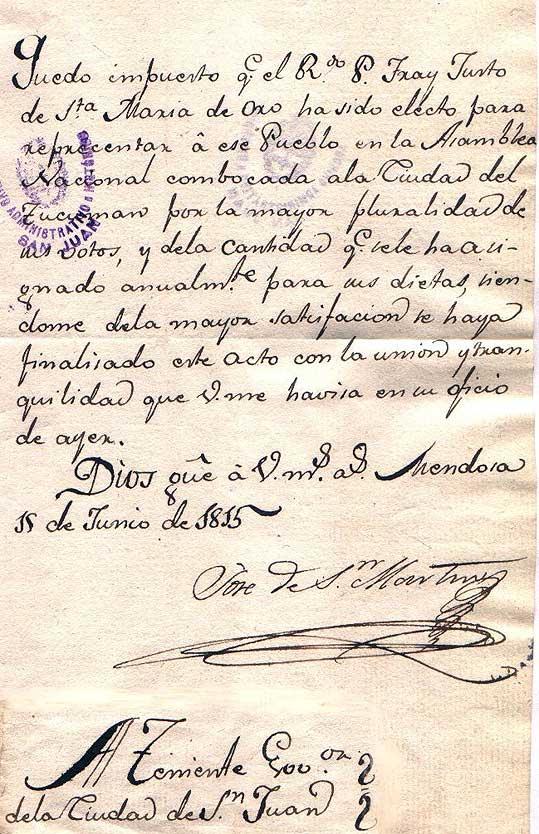 Quedo impuesto q.e el R.do P. Fray Justo
de S.ta Maria de Oro ha sido electo para
reprecentar â ese Pueblo en la Asamblea
Nacional combocada ala Ciudad del
Tucuman por la mayor pluralidad de
sus votos, y dela cantidad q.e sele ha asig-
gnado anualm.te para sus dietas, sien-
dome dela mayor satisfacion se haya
finalisado este acto con la union y tran-
quilidad que V. me havisa en su oficio
de ayer.
Dios gûe â V. m.s a.s Mendosa
de Junio de 1815
Jose de S.n Martin
Al Teniente Gov.or
dela Ciudad de S.n Juan
ADMINISTRATIVO
SAN JUAN